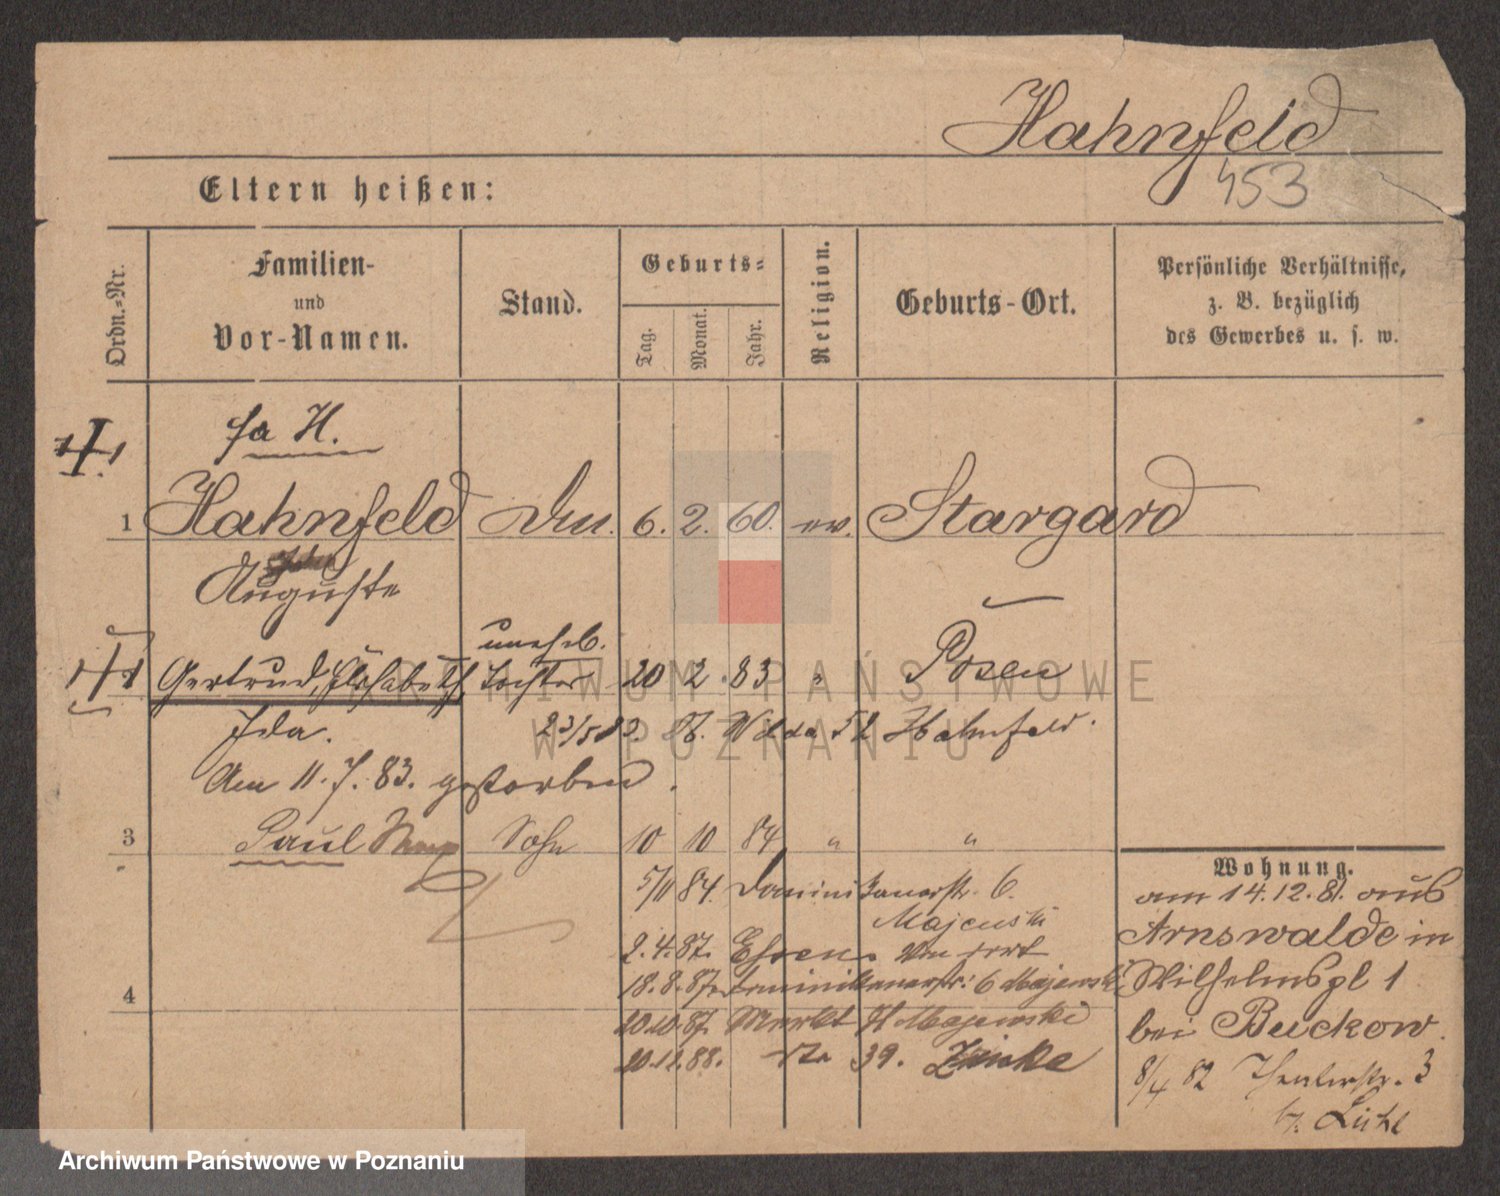 Hahnfeld
453
Eltern heißen:
Ordn.-Nr.
Familien-
und
Vor-Namen.
Stand.
Geburts-
Tag.
Monat.
Jahr.
Religion.
Geburts-Ort.
Persönliche Verhältnisse,
z. B. bezüglich
des Gewerbes u. s. w.
fa H.
1 Hahnfeld 6. 2. 60. ev. Stargard
Auguste
unehel.
Gertrud, Elisabeth Tochter 20 2. 83 " Posen
Ida. 23/5 83. St. Wilda 52 Hahnfeld.
Am 11. 7. 83. gestorben.
3 Paul Sohn 10 10 84 " "
5/11 84. Dominikanerstr. 6.
Majewski
2. 4. 87. von dort
4 18. 8. 87. Dominikanerstr. 6 Majewski
20 10 87. Markt Majewski
20.12.88. 39. Zinke
Wohnung.
am 14. 12. 81. aus
Arnswalde in
Wilhelmspl 1
bei Buckow.
8/4 82 Theaterstr. 3
b. Lühe
ARCHIWUM PAŃSTWOWE
W POZNANIU
Archiwum Państwowe w Poznaniu